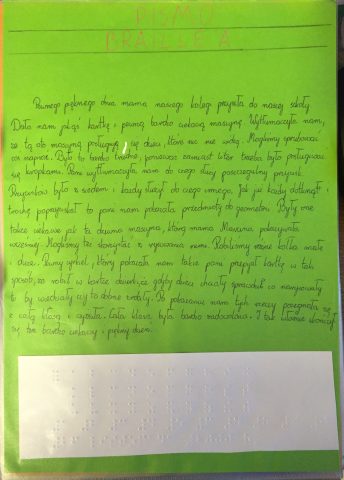 PISMO
BRAILLE'A
Pewnego pięknego dnia mama naszego kolegi przyszła do naszej szkoły.
Dała nam jakąś kartkę i pewną bardzo ciekawą maszynę. Wytłumaczyła nam,
że tą maszyną posługują się dzieci, które nic nie widzą. Mogliśmy spróbować
coś napisać. Było to bardzo trudne, ponieważ zamiast liter trzeba było posługiwać
się kropkami. Pani wytłumaczyła nam do czego służy poszczególny przycisk.
Przycisków było z siedem i każdy służył do czego innego. Jak już każdy dotknął i
trochę popisał to pani nam pokazała przedmioty do geometrii. Były one
takie ciekawe jak ta dawna maszyna, którą mama pokazywała
wcześniej. Mogliśmy też skorzystać z rysowania nimi. Robiliśmy różne kółka małe
i duże. Pewny cyrkiel, który pokazała nam także pani przepiął kartkę w taki
sposób, że robił w kartce dziurki, że gdyby dzieci chciały sprawdzić co narysowały
to by wiedziały czy to dobrze zrobiły. Po pokazaniu nam tych rzeczy pożegnała się
z całą klasą i wyszła. Cała klasa była bardzo zadowolona. I tak właśnie skończył
się ten bardzo ciekawy i piękny dzień.